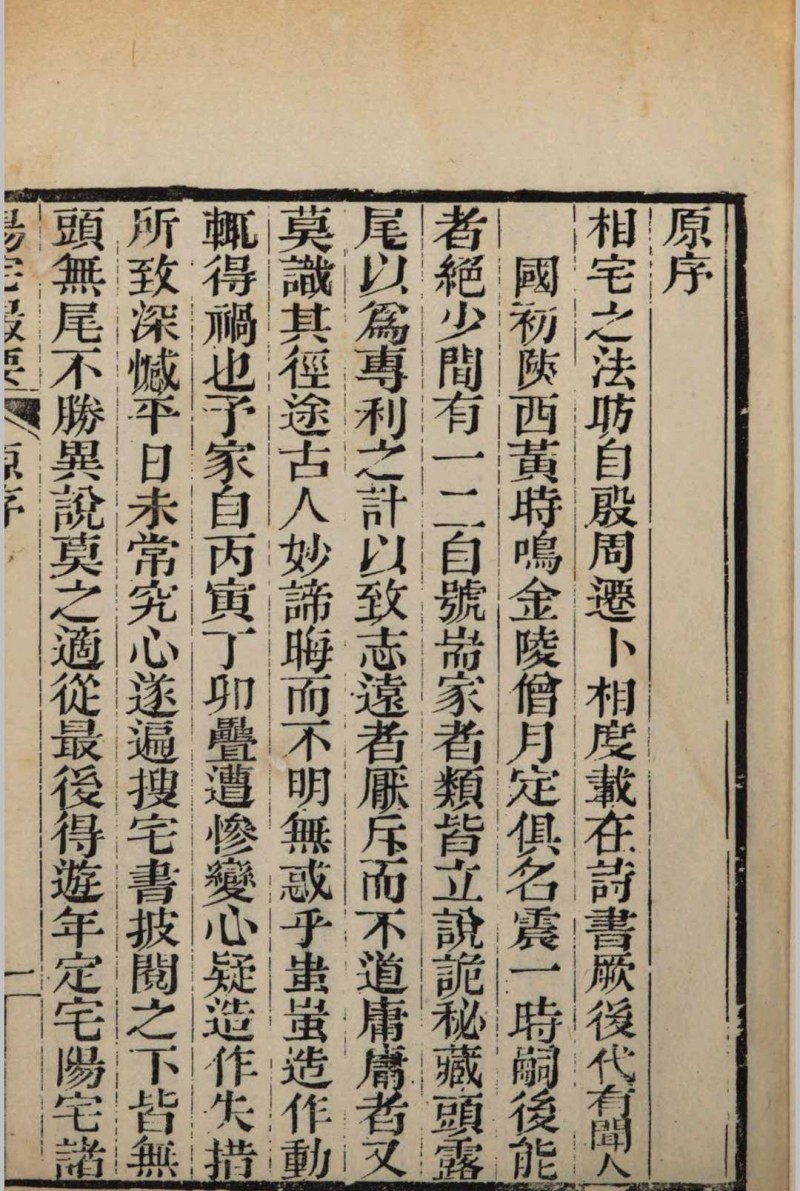 原序
相宅之法昉自殷周遷卜相度載在詩書厥後代有聞人
國初陝西黃時鳴金陵僧月定俱名震一時嗣後能
者絕少間有一二自號耑家者類皆立說詭秘藏頭露
尾以爲專利之計以致志遠者厭斥而不道庸庸者又
莫識其徑途古人妙諦晦而不明無惑乎蚩蚩造作動
輒得禍也予家自丙寅丁卯疊遭慘變心疑造作失措
所致深憾平日未常究心遂遍搜宅書披閱之下皆無
頭無尾不勝異說莫之適從最後得遊年定宅陽宅諸
原序
一